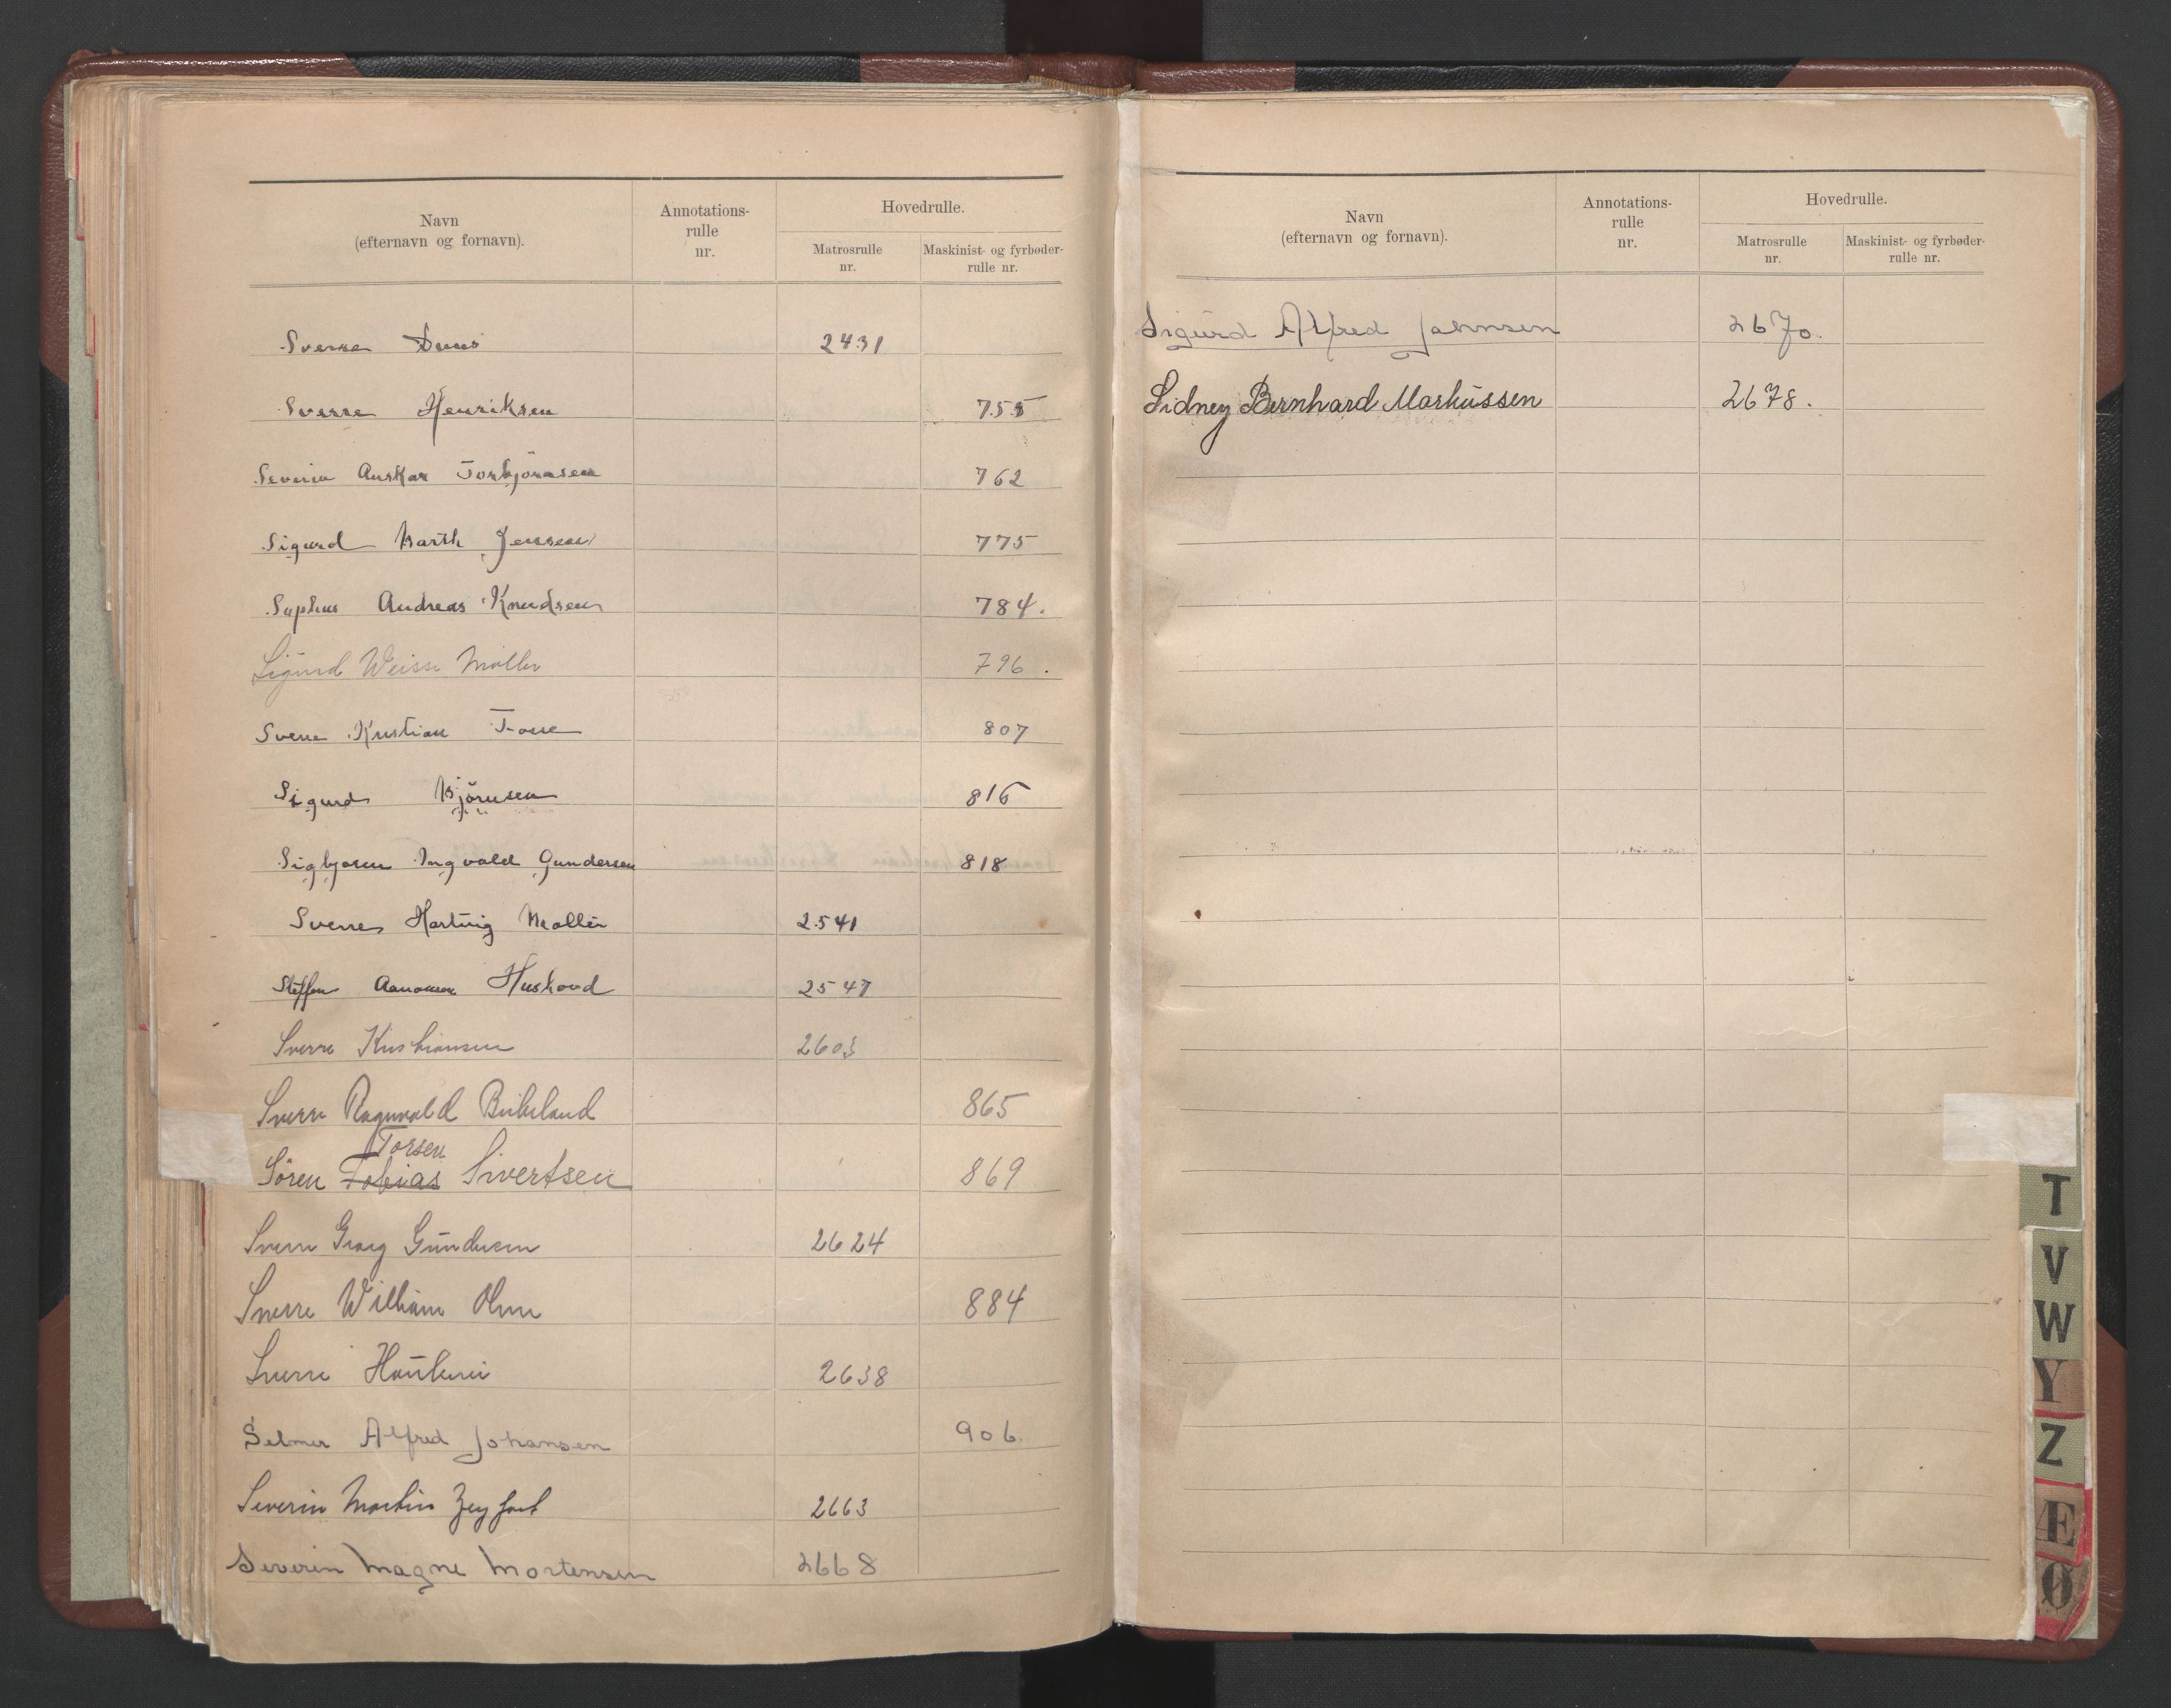 Navn
(efternavn og fornavn).
Annotations-
rulle
nr.
Hovedrulle.
Matrosrulle
nr.
Maskinist- og fyrbøder-
rulle nr.
Sverre 2431
Sverre Henriksen 755
Severin Anskar Torbjörnsen 762
Sigurd Barth Jenssen 775
Sophus Andreas Knudsen 784.
Sigurd Weisse Möller 796.
Sverre Kristian Fosse 807
Sigurd Björnsen 816
Sigbjörn Ingvald Gundersen 818
Sverre Hartvig Möller 2541
Steffen Aanonsen Huskovd 2547
Sverre Kristiansen 2603
Sverre Ragnvald Birkeland 865
Torsen
Sören Tobias Sivertsen 869
Sverre Georg Gundersen 2624
Sverre William Olsen 884
Sverre 2638
Selmer Alfred Johansen 906.
Severin Martin 2663
Severin Magne Mortensen 2668
Navn
(efternavn og fornavn).
Annotations-
rulle
nr.
Hovedrulle.
Matrosrulle
nr.
Maskinist- og fyrbøder-
rulle nr.
Sigurd Alfred Johnsen 2670.
Sidney Bernhard Markussen 2678.
T
V
W
Y
Z
Æ
Ø